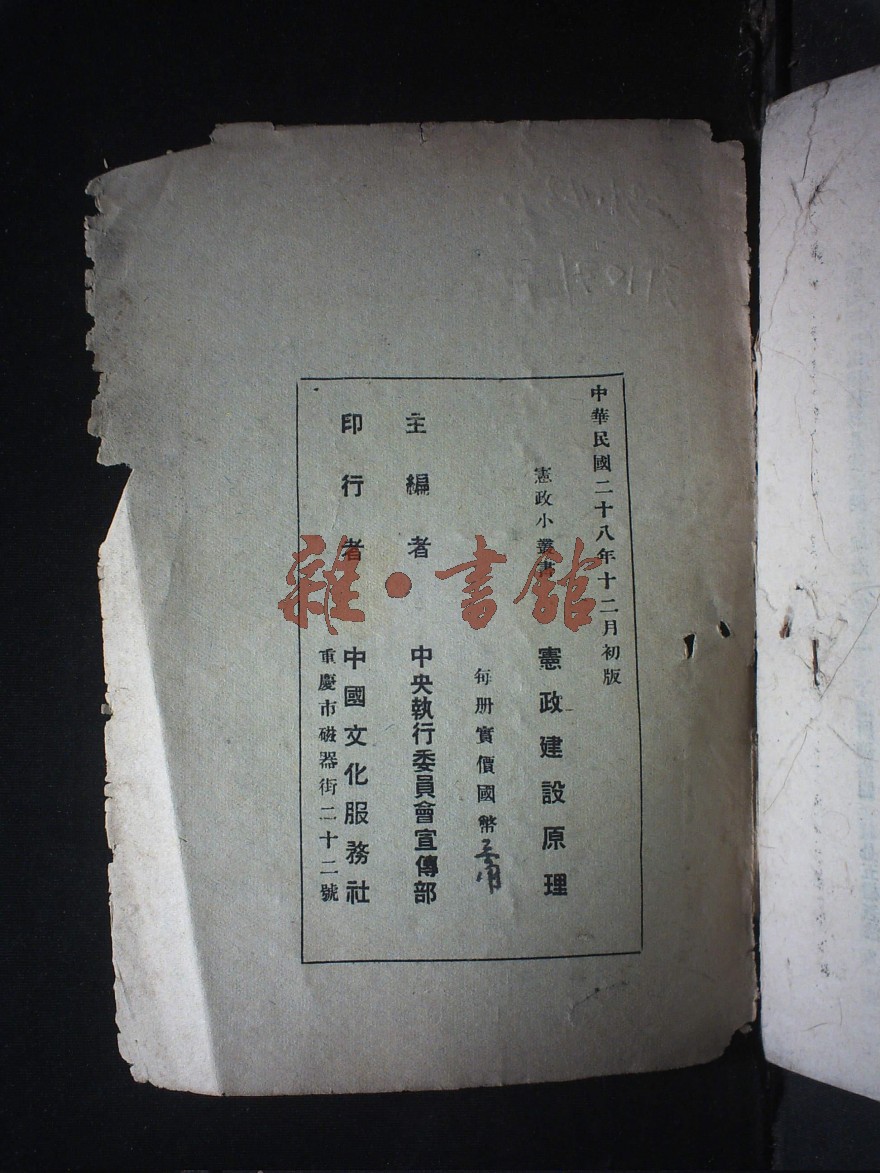 中華民國二十八年十二月初版
憲政小叢書
憲政建設原理
每册實價國幣
主編者
中央執行委員會宣傳部
印行者
中國文化服務社
重慶市磁器街二十二號
雜·書館